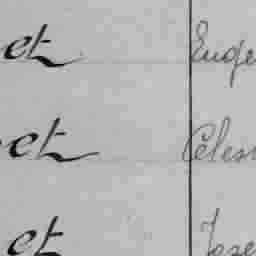 et Euge
et Céles
et Jose